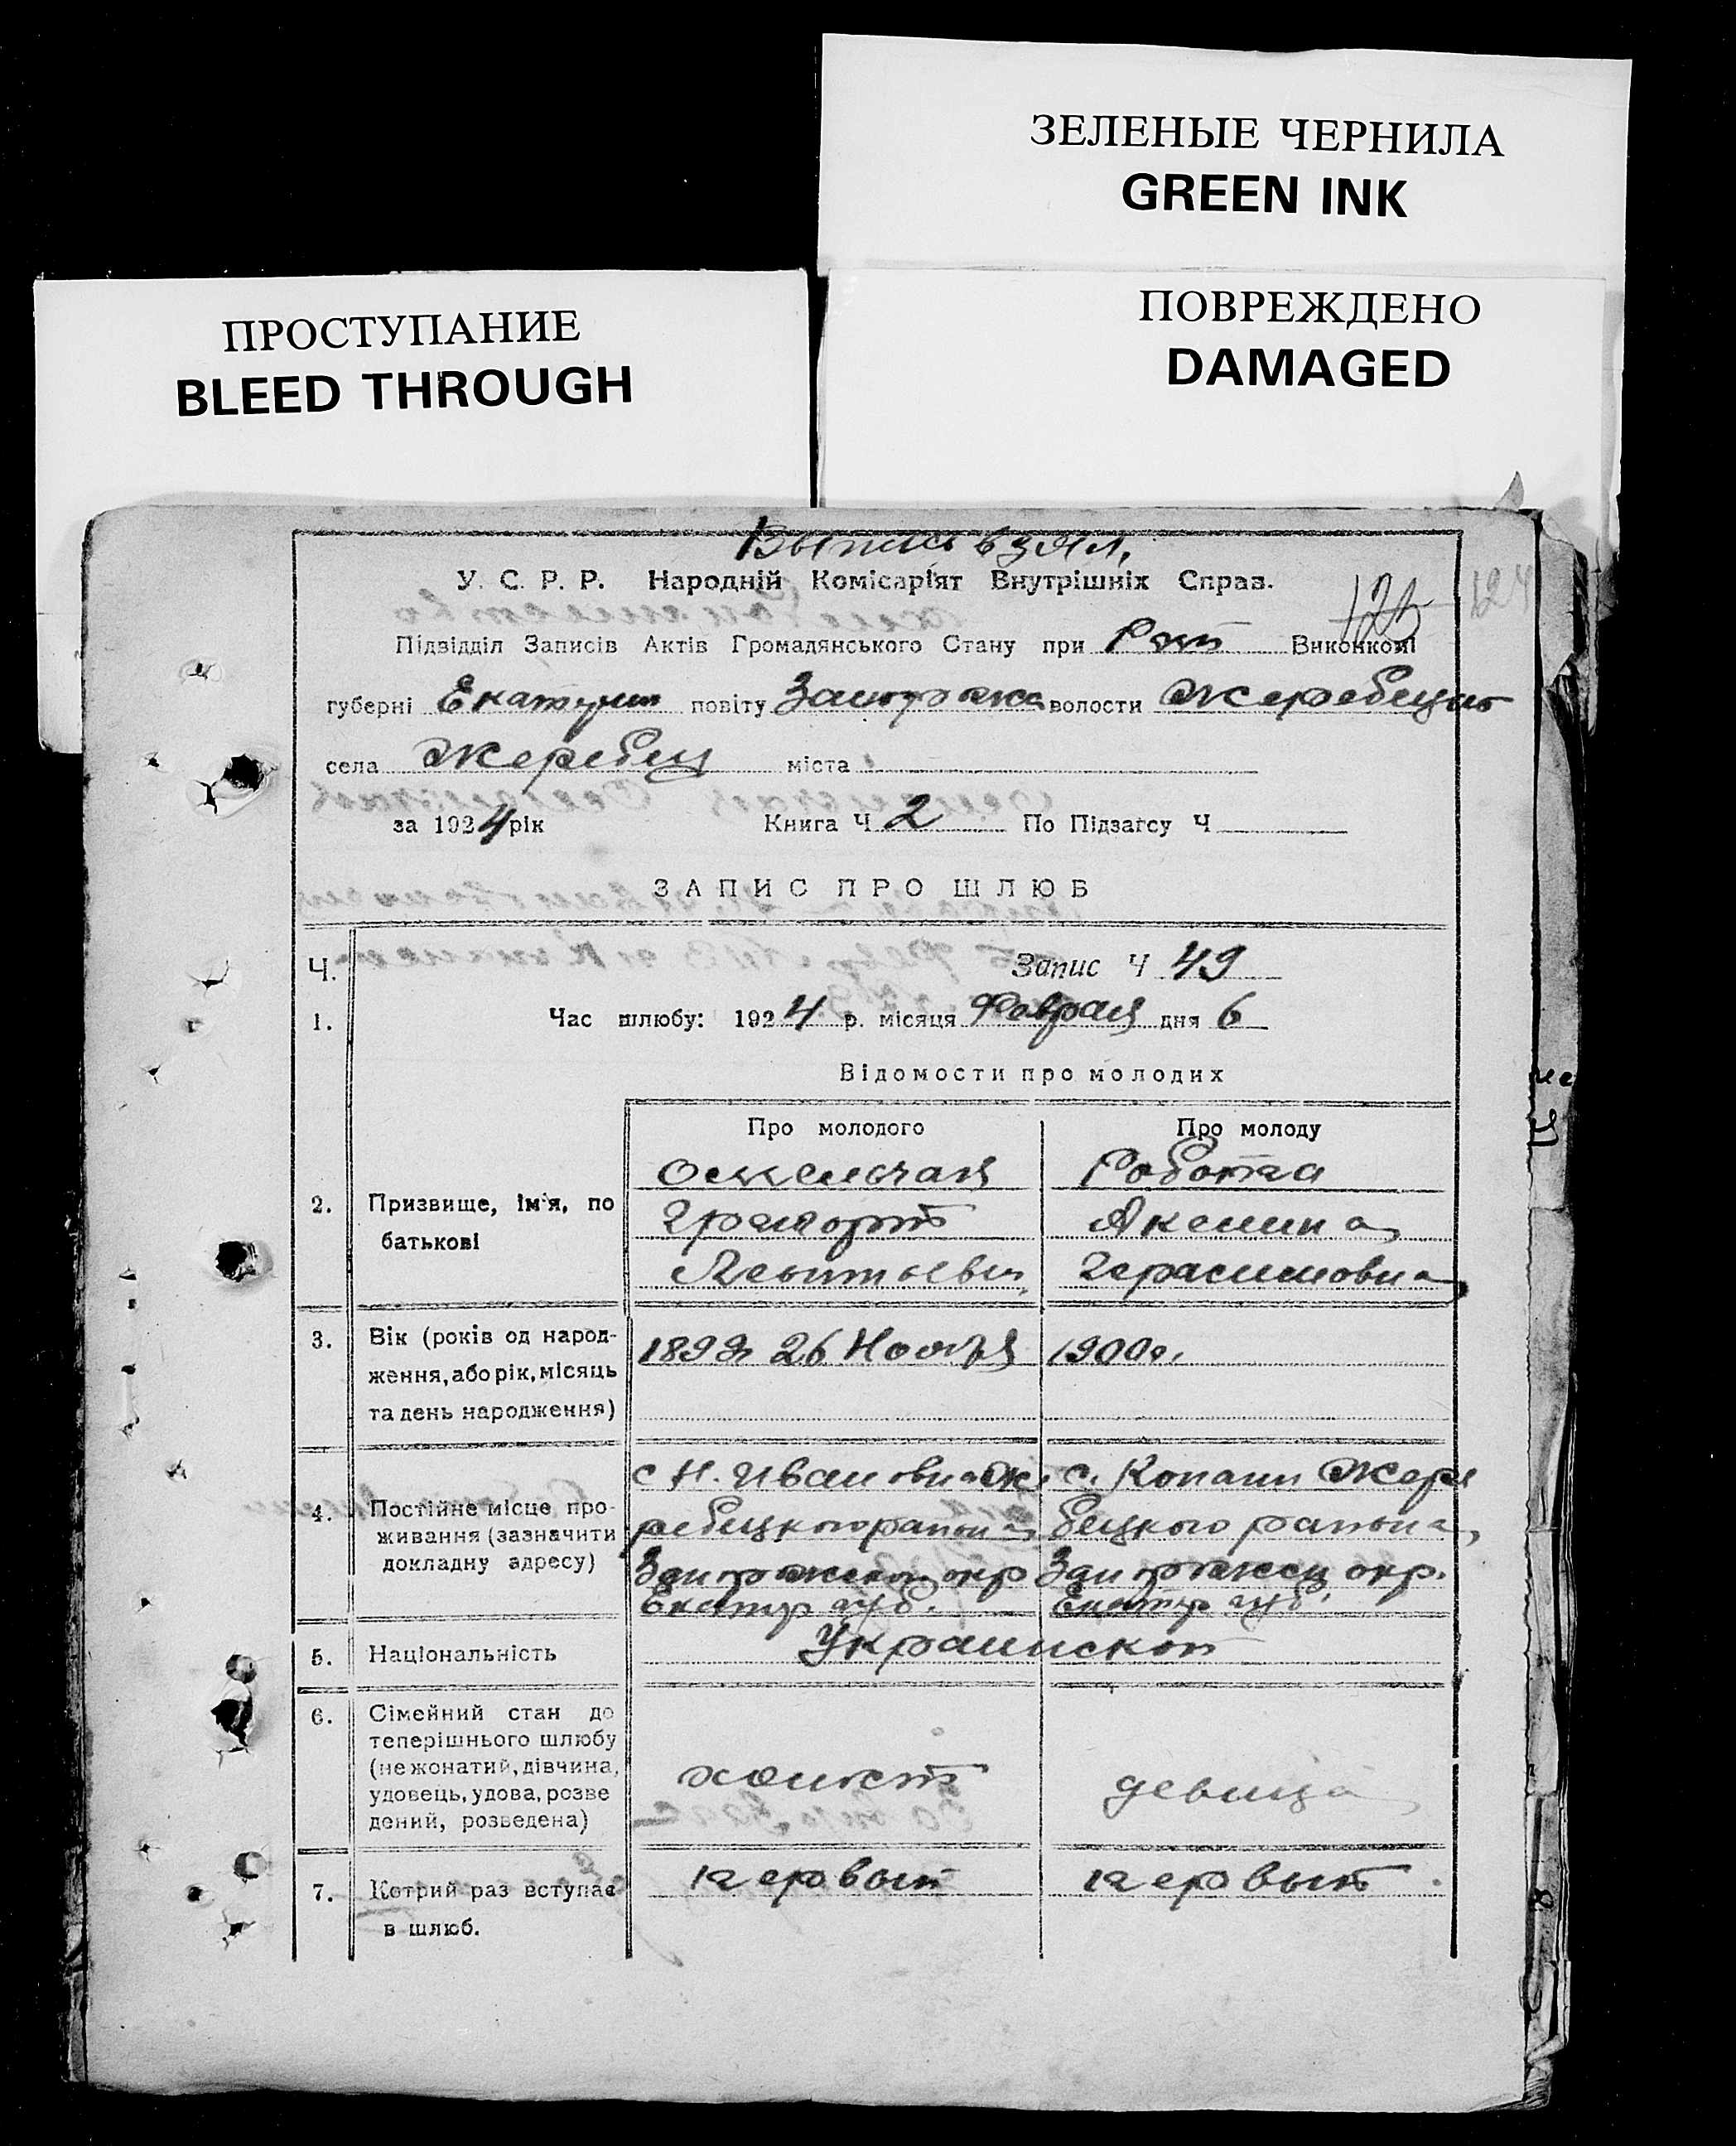 ЗЕЛЕНЫЕ ЧЕРНИЛА
GREEN INK
ПРОСТУПАНИЕ
BLEED THROUGH
ПОВРЕЖДЕНО
DAMAGED
Выпись взял,
У. С. Р. Р. Народній Комісаріят Внутрішніх Справ.
125 124
Підвідділ Записів Актів Громадянського Стану при Рай Виконкомі
губерні Екатерин повіту Запорожс волости Жеребецкой
села Жеребец міста
за 1924 рік Книга Ч 2 По Підзагсу Ч
ЗАПИС ПРО ШЛЮБ
Ч. Запис Ч 49
1. Час шлюбу: 1924 р. місяця Февраля дня 6
Відомости про молодих
Про молодого Про молоду
Роботяга
2. Призвище, ім'я, по Григорий Аксинья
батькові Леонтьевич Герасимовна
3. Вік (років од народ- 1899г 26 Ноября 1900г.
ження, або рік, місяць
та день народження)
с Н. Ивановка Же с. Копани Жере
4. Постійне місце про- ребецкого района бецкого района
живання (зазначити
докладну адресу) Запорожской окр Запорожск окр.
Екатер губ. Екатер губ.
5. Національність Украинской
6. Сімейний стан до
теперішнього шлюбу
(не жонатий, дівчина, холост девица
удовець, удова, розве
дений, розведена)
7. Котрий раз вступає первый первый
в шлюб.